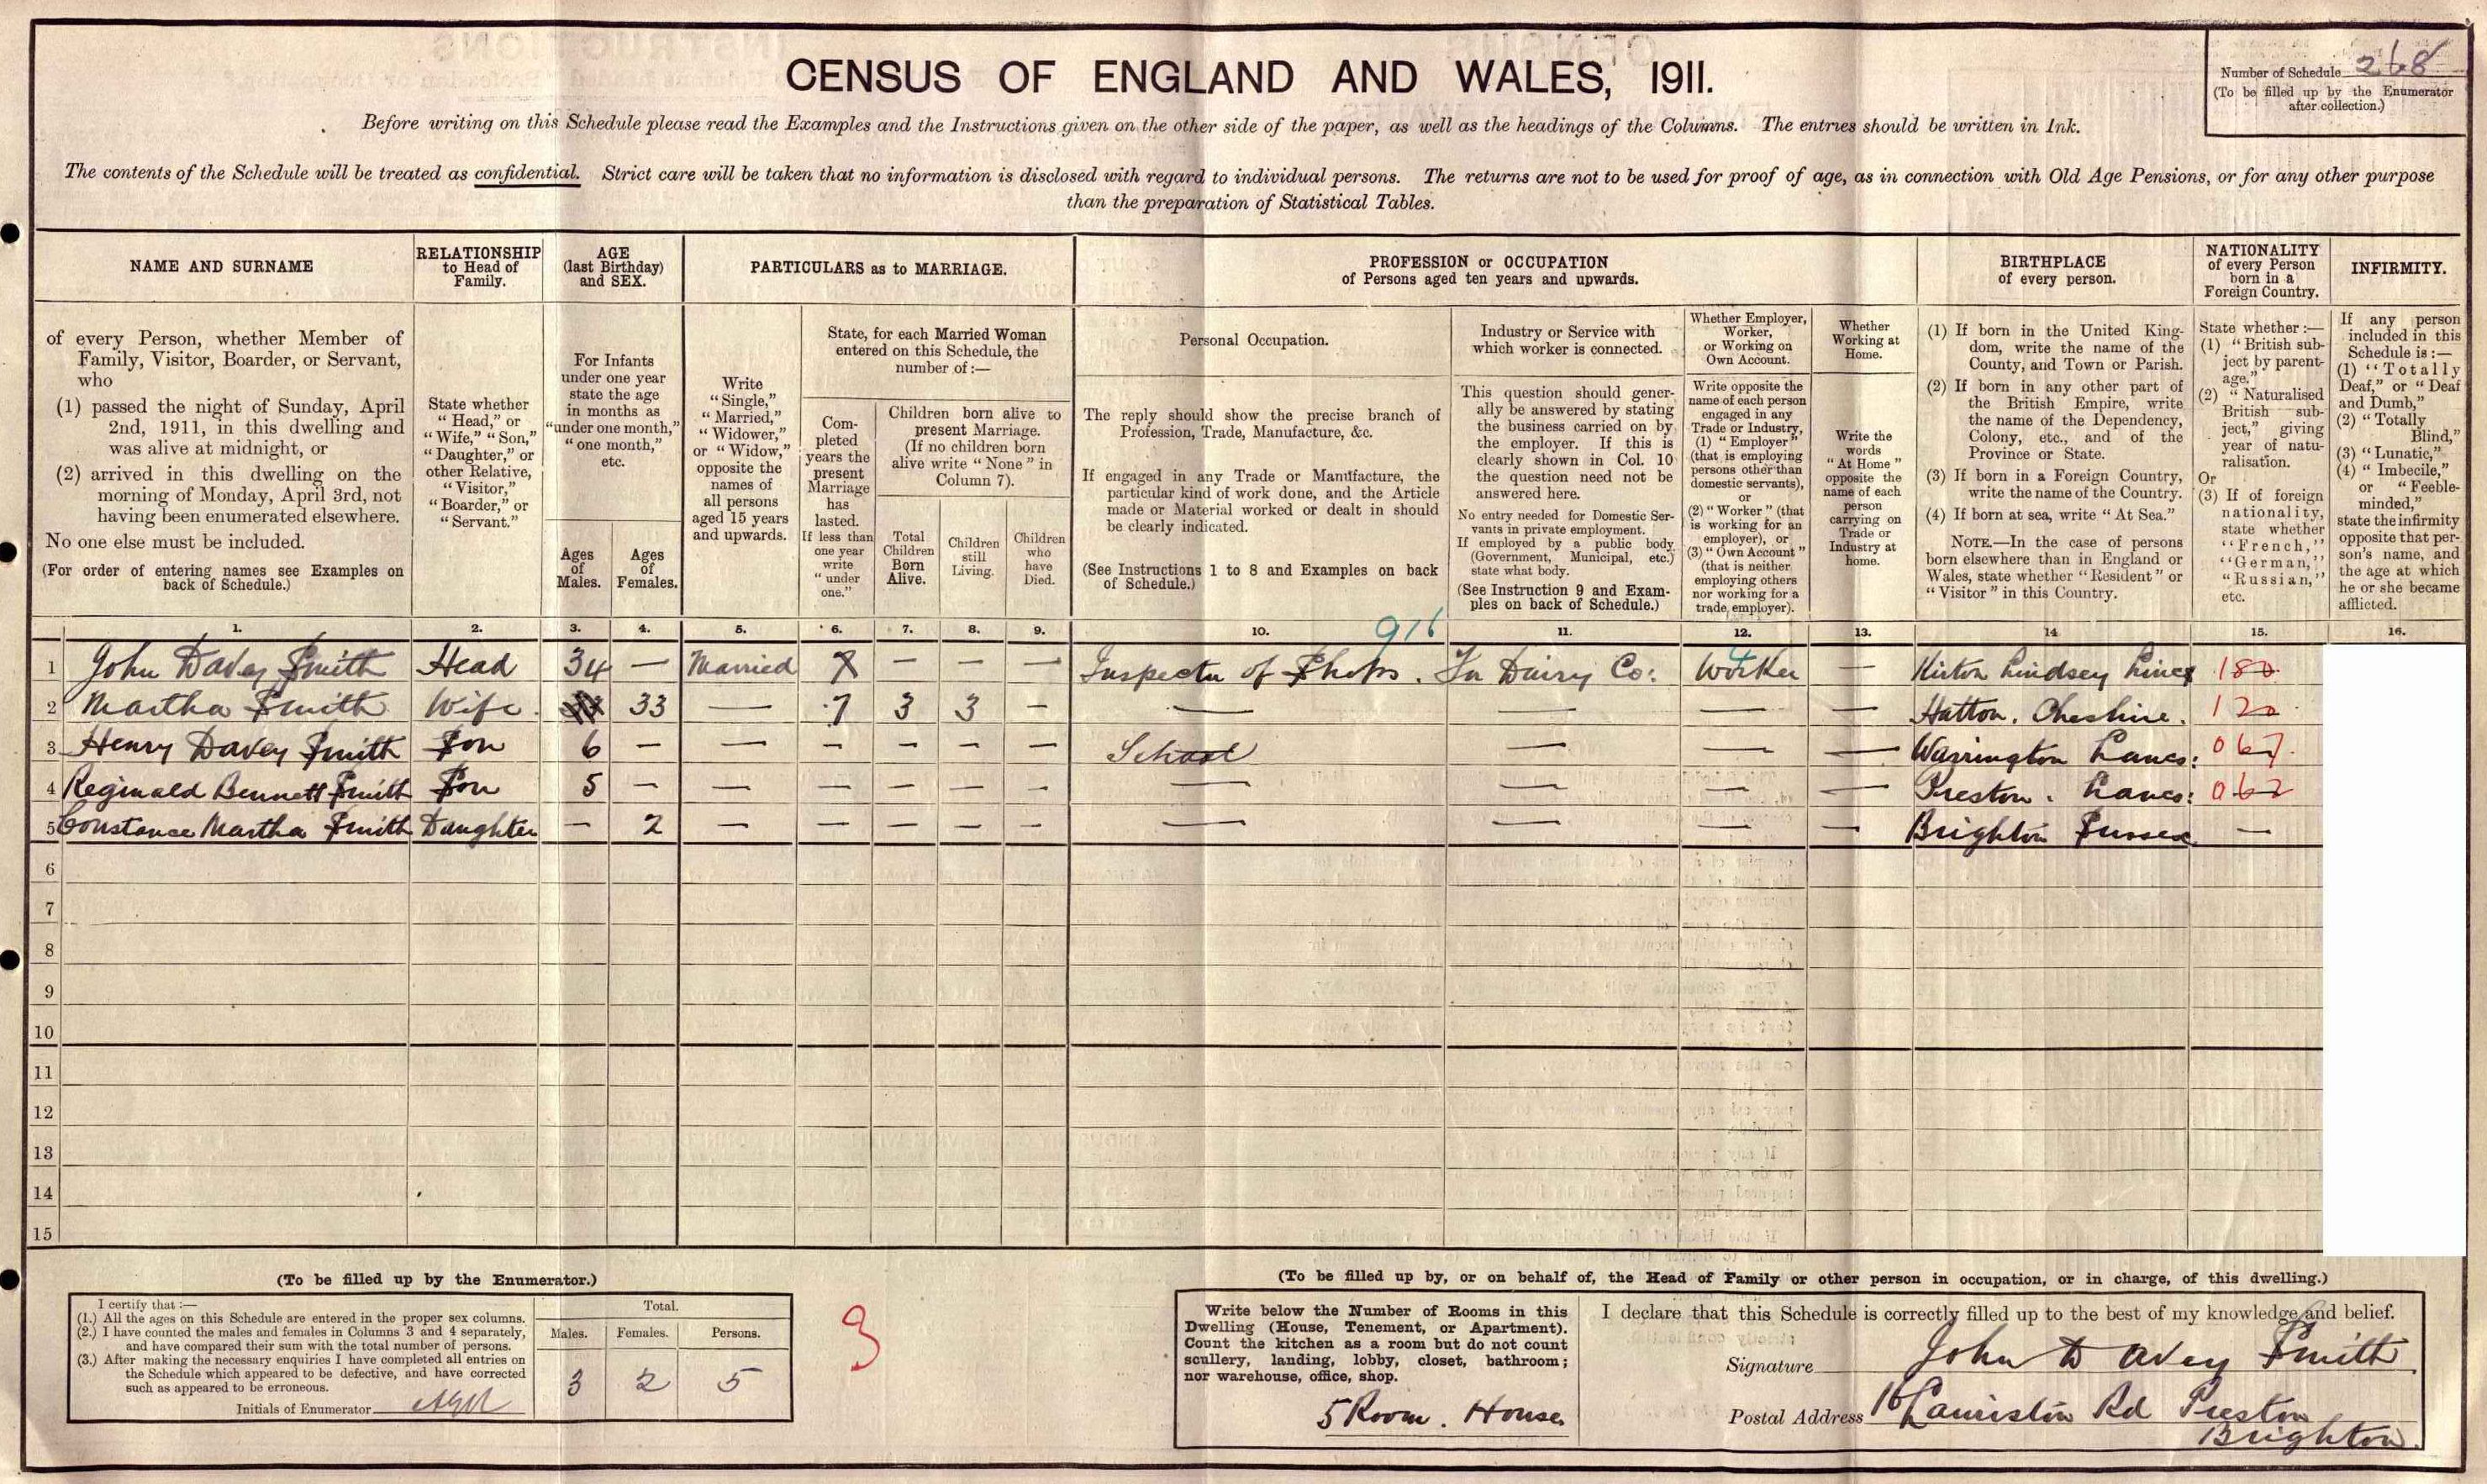 CENSUS OF ENGLAND AND WALES, 1911.
Number of Schedule 268
(To be filled up by the Enumerator
after collection.)
Before writing on this Schedule please read the Examples and the Instructions given on the other side of the paper, as well as the headings of the Columns. The entries should be written in Ink.
The contents of the Schedule will be treated as confidential. Strict care will be taken that no information is disclosed with regard to individual persons. The returns are not to be used for proof of age, as in connection with Old Age Pensions, or for any other purpose
than the preparation of Statistical Tables.
NAME AND SURNAME
of every Person, whether Member of
Family, Visitor, Boarder, or Servant,
who
(1) passed the night of Sunday, April
2nd, 1911, in this dwelling and
was alive at midnight, or
(2) arrived in this dwelling on the
morning of Monday, April 3rd, not
having been enumerated elsewhere.
No one else must be included.
(For order of entering names see Examples on
back of Schedule.)
RELATIONSHIP
to Head of
Family.
State whether
"Head," or
"Wife," "Son,"
"Daughter," or
other Relative,
"Visitor,"
"Boarder," or
"Servant."
AGE
(last Birthday)
and SEX.
For Infants
under one year
state the age
in months as
"under one month,"
"one month,"
etc.
Ages
of
Males.
Ages
of
Females.
PARTICULARS as to MARRIAGE.
Write
"Single,"
"Married,"
"Widower,"
or "Widow,"
opposite the
names of
all persons
aged 15 years
and upwards.
State, for each Married Woman
entered on this Schedule, the
number of :—
Com-
pleted
years the
present
Marriage
has
lasted.
If less than
one year
write
"under
one."
Children born alive to
present Marriage.
(If no children born
alive write "None" in
Column 7).
Total
Children
Born
Alive.
Children
still
Living.
Children
who
have
Died.
PROFESSION or OCCUPATION
of Persons aged ten years and upwards.
Personal Occupation.
The reply should show the precise branch of
Profession, Trade, Manufacture, &c.
If engaged in any Trade or Manufacture, the
particular kind of work done, and the Article
made or Material worked or dealt in should
be clearly indicated.
(See Instructions 1 to 8 and Examples on back
of Schedule.)
Industry or Service with
which worker is connected.
This question should gener-
ally be answered by stating
the business carried on by
the employer. If this is
clearly shown in Col. 10
the question need not be
answered here.
No entry needed for Domestic Ser-
vants in private employment.
If employed by a public body
(Government, Municipal, etc.)
state what body.
(See Instruction 9 and Exam-
ples on back of Schedule.)
Whether Employer,
Worker,
or Working on
Own Account.
Write opposite the
name of each person
engaged in any
Trade or Industry,
(1) "Employer"
(that is employing
persons other than
domestic servants),
or
(2) "Worker" (that
is working for an
employer), or
(3) "Own Account"
(that is neither
employing others
nor working for a
trade employer).
Whether
Working at
Home.
Write the
words
"At Home"
opposite the
name of each
person
carrying on
Trade or
Industry at
home.
BIRTHPLACE
of every person.
(1) If born in the United King-
dom, write the name of the
County, and Town or Parish.
(2) If born in any other part of
the British Empire, write
the name of the Dependency,
Colony, etc., and of the
Province or State.
(3) If born in a Foreign Country,
write the name of the Country.
(4) If born at sea, write "At Sea."
NOTE.—In the case of persons
born elsewhere than in England or
Wales, state whether "Resident" or
"Visitor" in this Country.
NATIONALITY
of every Person
born in a
Foreign Country.
State whether :—
(1) "British sub-
ject by parent-
age."
(2) "Naturalised
British sub-
ject," giving
year of natu-
ralisation.
Or
(3) If of foreign
nationality,
state whether
"French,"
"German,"
"Russian,"
etc.
INFIRMITY.
If any person
included in this
Schedule is :—
(1) "Totally
Deaf," or "Deaf
and Dumb,"
(2) "Totally
Blind,"
(3) "Lunatic,"
(4) "Imbecile,"
or "Feeble-
minded,"
state the infirmity
opposite that per-
son's name, and
the age at which
he or she became
afflicted.
1. 2. 3. 4. 5. 6. 7. 8. 9. 10. 916 11. 12. 13. 14 15. 16.
1 John Davey Smith Head 34 — Married 7 — — — Inspector of Shops. In Dairy Co: Worker — Kirton Lindsey Lincs 180
2 Martha Smith Wife. 33 — 7 3 3 — — — — — Hatton. Cheshire. 120
3 Henry Davey Smith Son 6 — — — — — — School — — — Warrington Lancs: 067
4 Reginald Bennett Smith Son 5 — — — — — — — — — — Preston. Lancs: 062
5 Constance Martha Smith Daughter — 2 — — — — — — — — — Brighton Sussex —
6
7
8
9
10
11
12
13
14
15
(To be filled up by the Enumerator.)
I certify that :—
(1.) All the ages on this Schedule are entered in the proper sex columns.
(2.) I have counted the males and females in Columns 3 and 4 separately,
and have compared their sum with the total number of persons.
(3.) After making the necessary enquiries I have completed all entries on
the Schedule which appeared to be defective, and have corrected
such as appeared to be erroneous.
Initials of Enumerator
Total.
Males. Females. Persons.
3 2 5
3
(To be filled up by, or on behalf of, the Head of Family or other person in occupation, or in charge, of this dwelling.)
Write below the Number of Rooms in this
Dwelling (House, Tenement, or Apartment).
Count the kitchen as a room but do not count
scullery, landing, lobby, closet, bathroom;
nor warehouse, office, shop.
5 Room. House
I declare that this Schedule is correctly filled up to the best of my knowledge and belief.
Signature John Davey Smith
Postal Address 16 Lauriston Rd Preston
Brighton.